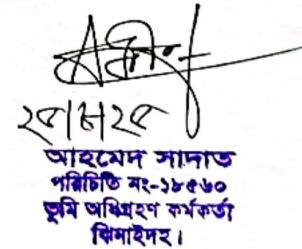 ২৫|৮|২৫
আহমেদ সাদাত
পরিচিতি নং-১৮৫৬০
ভূমি অধিগ্রহণ কর্মকর্তা
ঝিনাইদহ।